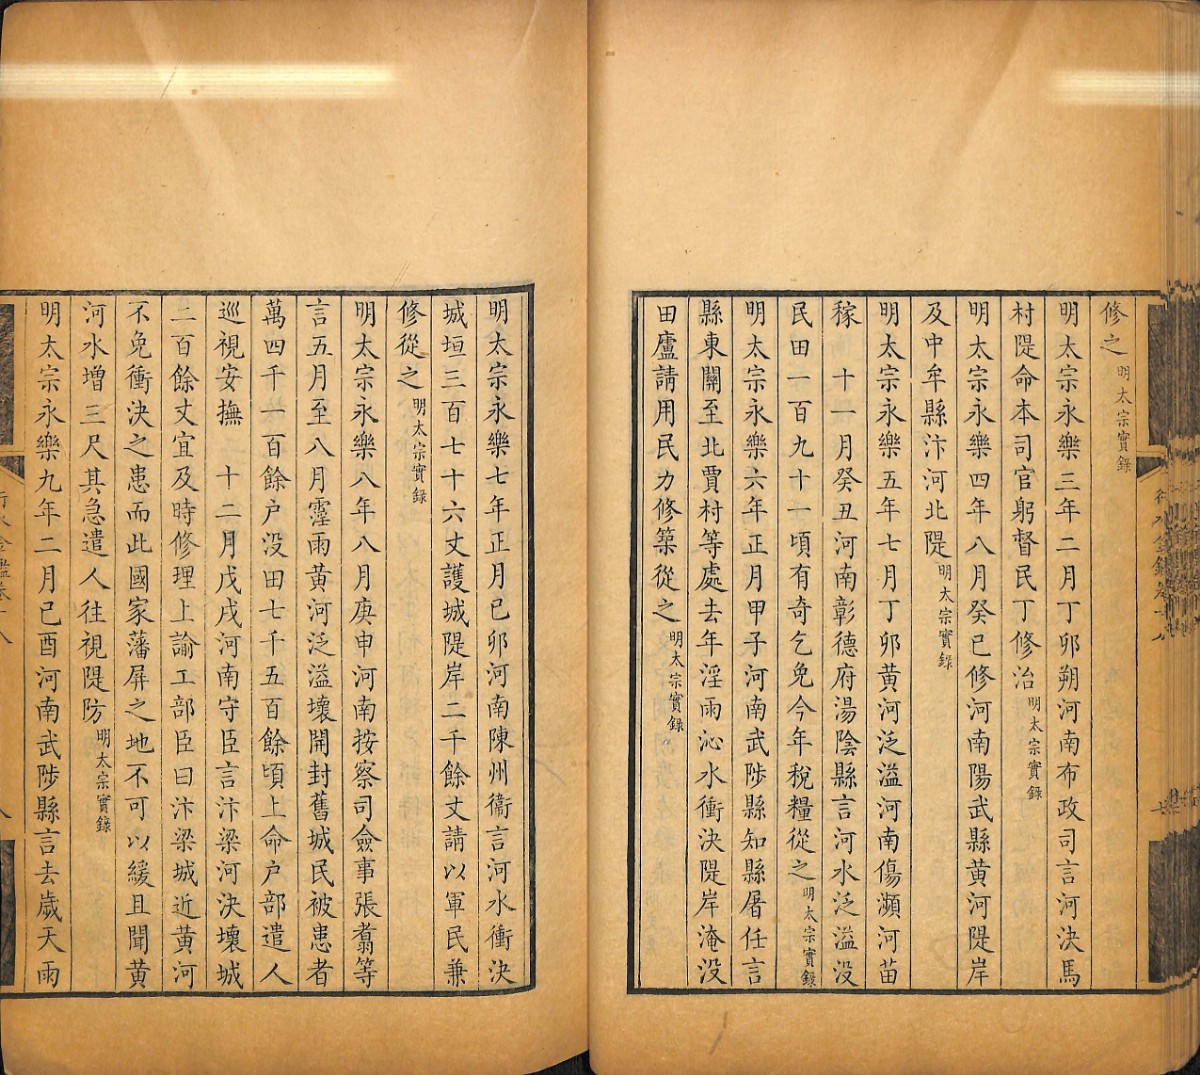 修之明太宗實錄
明太宗永樂三年二月丁卯朔河南布政司言河決馬
村隄命本司官躬督民丁修治明太宗實錄
明太宗永樂四年八月癸巳修河南陽武縣黄河隄岸
及中牟縣汴河北隄明太宗實錄
明太宗永樂五年七月丁卯黄河泛溢河南傷瀕河苗
稼 十一月癸丑河南彰德府湯陰縣言河水泛溢没
民田一百九十一頃有奇乞免今年稅糧從之明太宗實錄
明太宗永樂六年正月甲子河南武陟縣知縣屠任言
縣東關至北賈村等處去年淫雨沁水衝決隄岸淹没
田廬請用民力修築從之明太宗實錄
明太宗永樂七年正月已卯河南陳州衞言河水衝決
城垣三百七十六丈護城隄岸二千餘丈請以軍民兼
修從之明太宗實錄
明太宗永樂八年八月庚申河南按察司僉事張翥等
言五月至八月霪雨黄河泛溢壞開封舊城民被患者
萬四千一百餘户没田七千五百餘頃上命户部遣人
巡視安撫 十二月戊戌河南守臣言汴梁河決壞城
二百餘丈宜及時修理上諭工部臣曰汴梁城近黄河
不免衝決之患而此國家藩屏之地不可以緩且聞黄
河水增三尺其急遣人往視隄防明太宗實錄
明太宗永樂九年二月已酉河南武陟縣言去歲天雨
行水金鑑卷十八